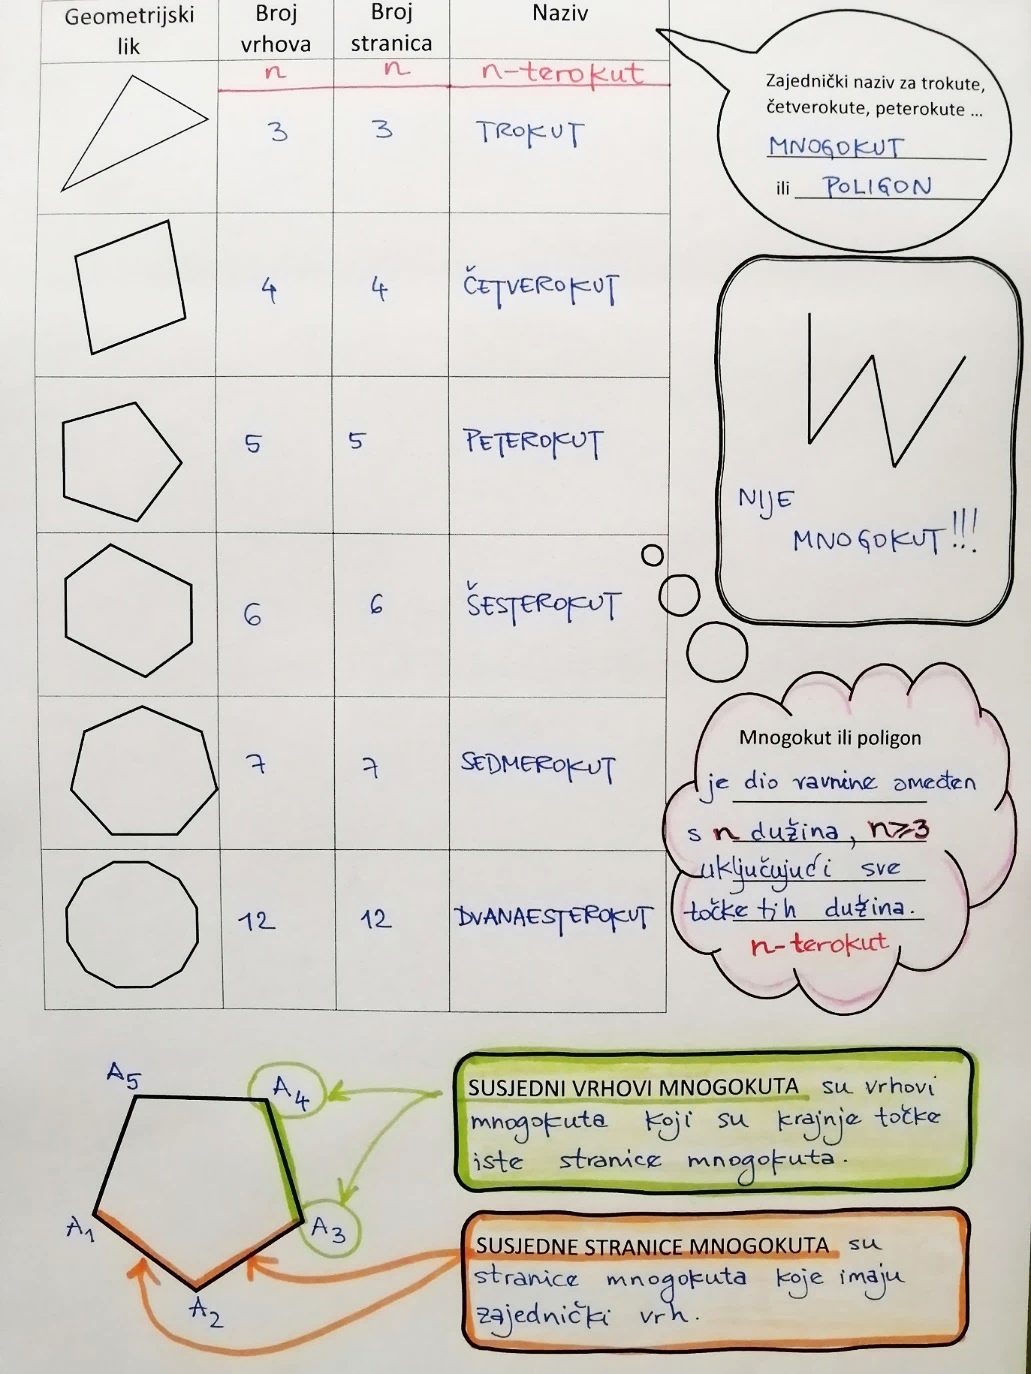 Geometrijski lik
Broj vrhova
Broj stranica
Naziv
n
n
n-terokut
3
3
TROKUT
4
4
ČETVEROKUT
5
5
PETEROKUT
6
6
ŠESTEROKUT
7
7
SEDMEROKUT
12
12
DVANAESTEROKUT
Zajednički naziv za trokute,
četverokute, peterokute ...
MNOGOKUT
ili POLIGON
NIJE
MNOGOKUT!!!
Mnogokut ili poligon
je dio ravnine omeđen
s n dužina, n⩾3
uključujući sve
točke tih dužina.
n-terokut
A5
A4
A1
A3
A2
SUSJEDNI VRHOVI MNOGOKUTA su vrhovi
mnogokuta koji su krajnje točke
iste stranice mnogokuta.
SUSJEDNE STRANICE MNOGOKUTA su
stranice mnogokuta koje imaju
zajednički vrh.